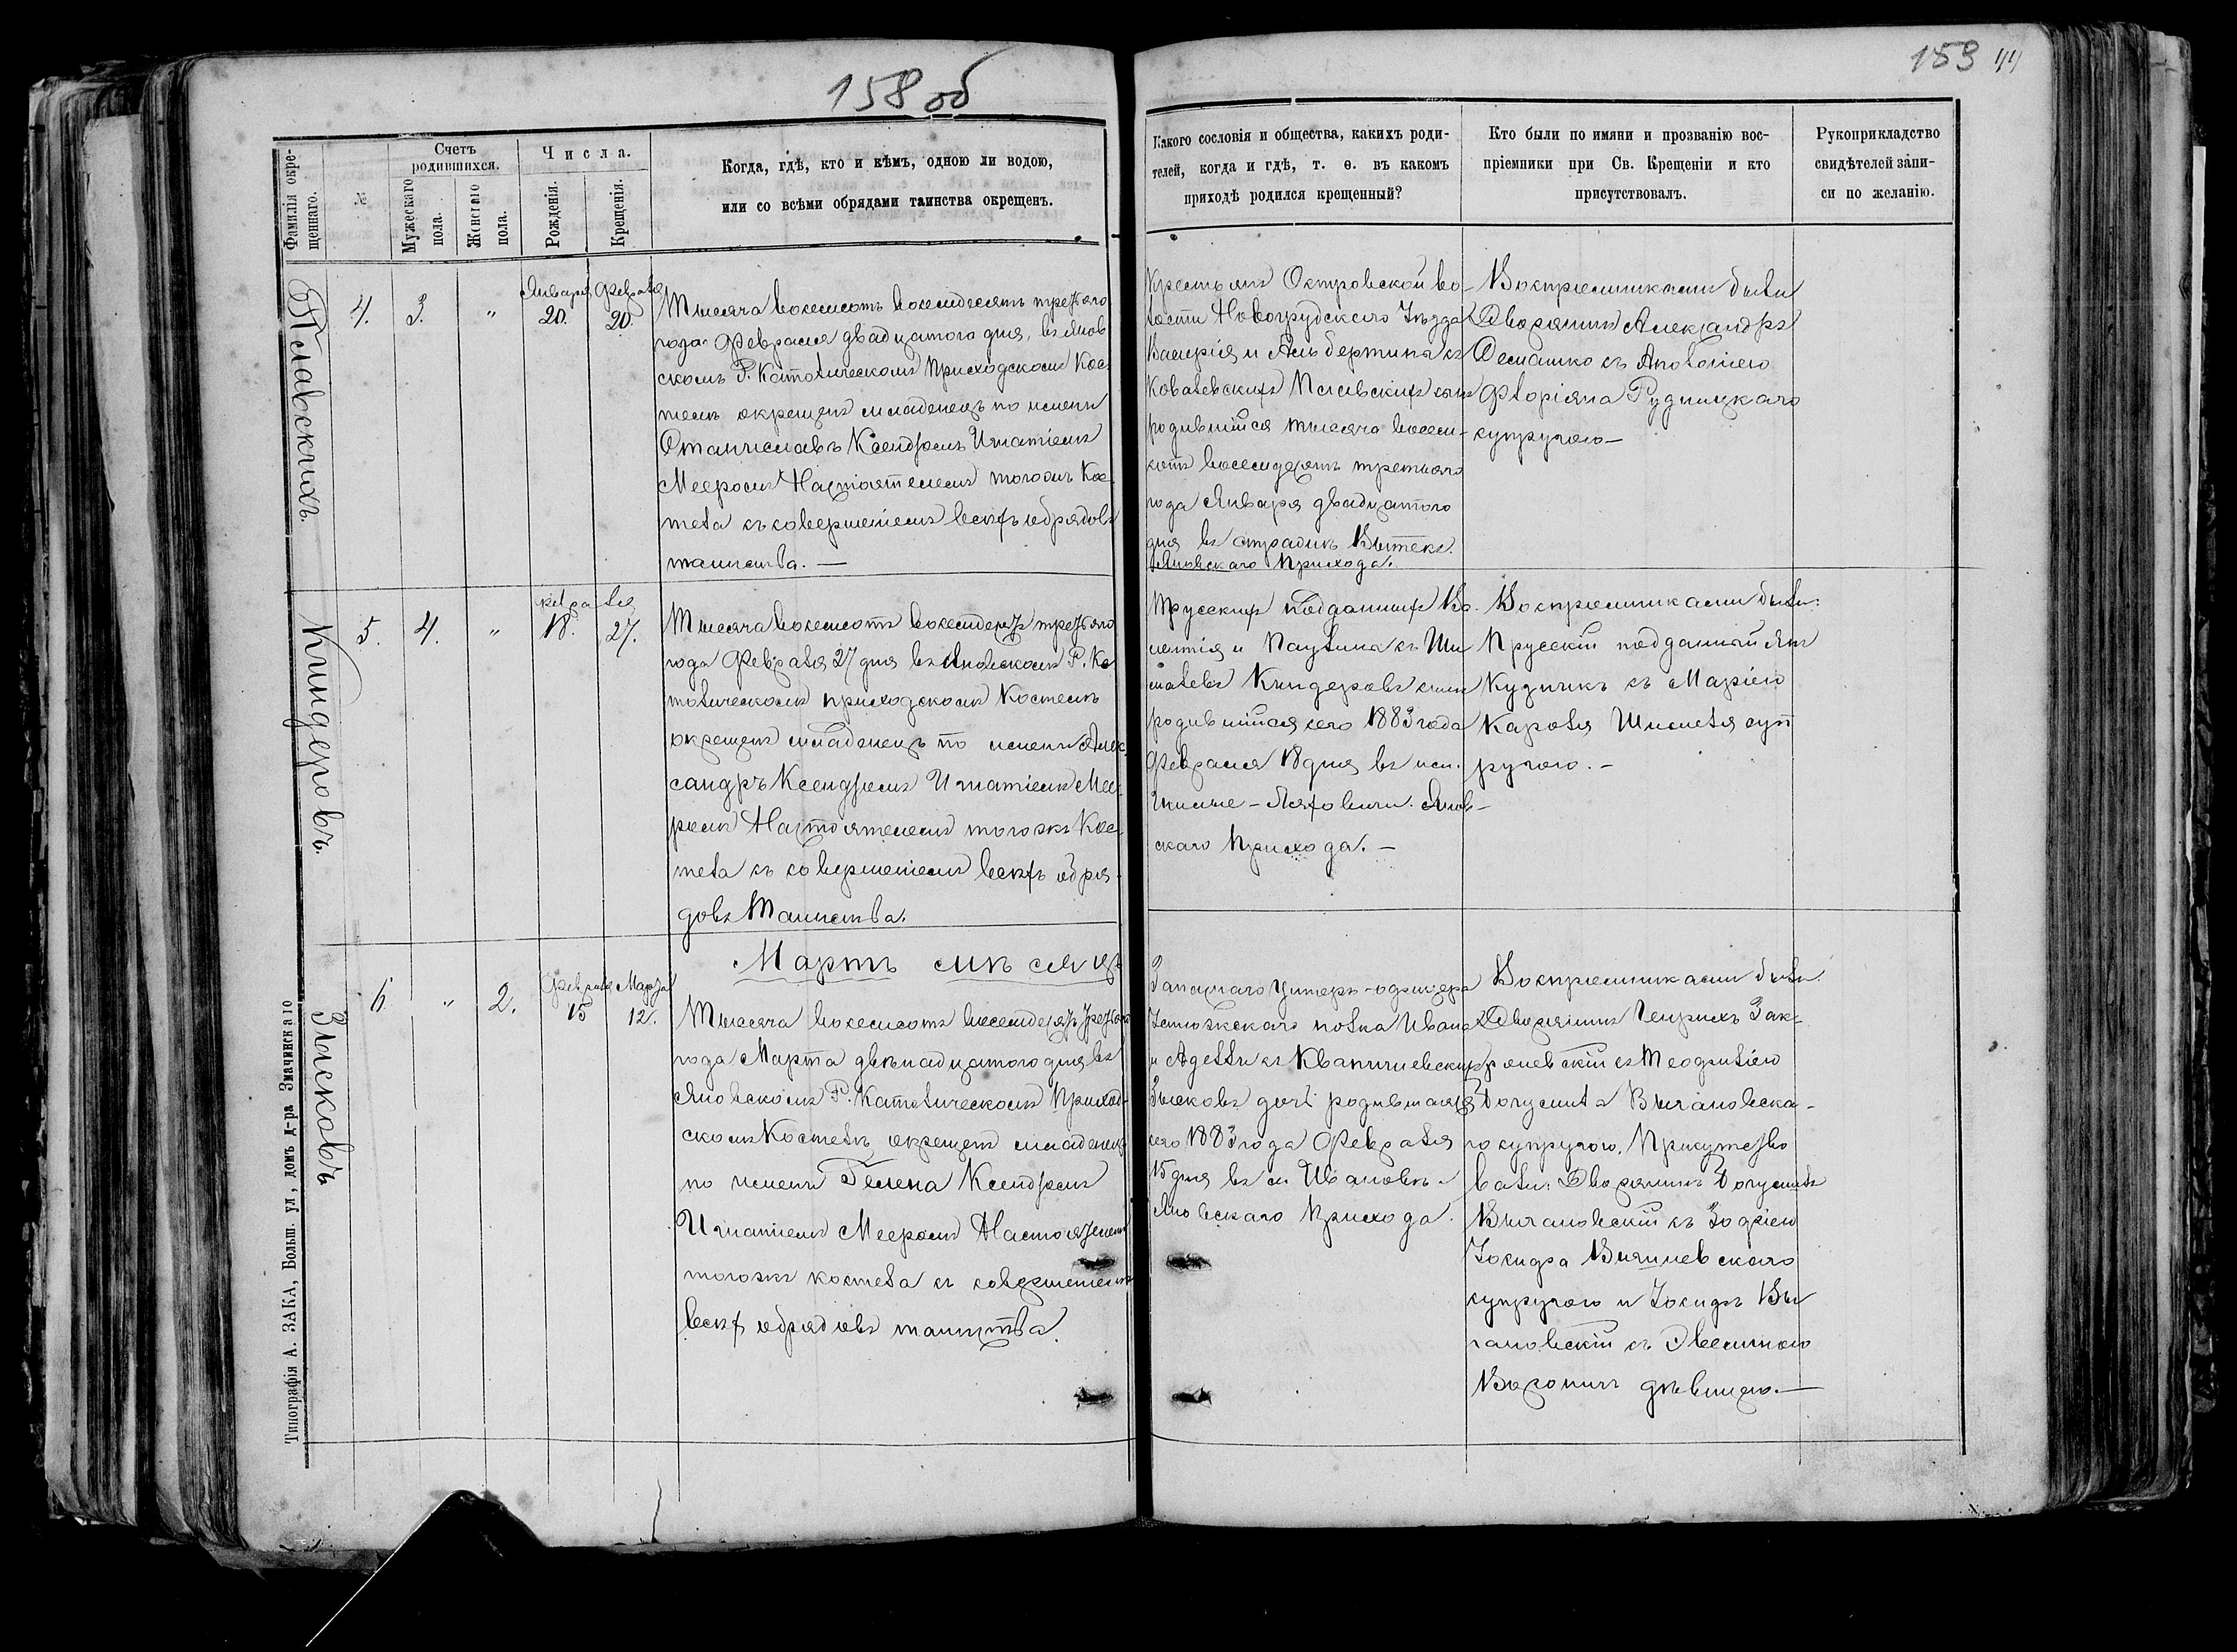 158 об
Фамилія окре-
щеннаго.
№
Счетъ
родившихся.
Мужескаго
пола.
Женскаго
пола.
Числа.
Рожденія.
Крещенія.
Когда, гдѣ, кто и кѣмъ, одною ли водою,
или со всѣми обрядами таинства окрещенъ.
4.
3.
"
Января
20.
Февраля
20.
Тысяча восемьсотъ восемдесятъ третьяго
года Февраля двадцатого дня, въ Янов
скомъ Р. Католическомъ Приходскомъ Кос
телѣ окрещенъ младенецъ по имени
Станиславъ Ксендзомъ Игнатіемъ
Мееромъ Настоятелемъ тогожъ Кос
тела съ совершеніемъ всѣхъ обрядовъ
таинства. —
Киндеровъ.
5.
4.
"
Февраля
18.
27.
Тысяча восемсотъ восемдесятъ третьяго
года Февраля 27 дня въ Яновскомъ Р. Ка
толическомъ приходскомъ Костелѣ
окрещенъ младенецъ по имени Алек
сандръ Ксендзомъ Игнатіемъ Мее-
ромъ Настоятелемъ тогожъ Кос
тела съ совершеніемъ всѣхъ обря-
довъ Таинства.
Мартъ мѣсяцъ
Зысковъ
6.
"
2.
Февраля
15
Марта
12.
Тысяча восемсотъ восемдесятъ третьяго
года Марта двѣнадцатого дня въ
Яновскомъ Р. Католическомъ Приход-
скомъ Костелѣ окрещенъ младенецъ
по имени Гелена Ксендзомъ
Игнатіемъ Мееромъ Настоятелемъ
тогожъ костела съ совершеніемъ
всѣхъ обрядовъ таинства.
Типографія А. ЗАКА, Больш. ул, домъ д-ра Значинскаго
153 44
Какого сословія и общества, какихъ роди-
телей, когда и гдѣ, т. е. въ какомъ
приходѣ родился крещенный?
Кто были по имяни и прозванію вос-
пріемники при Св. Крещеніи и кто
присутствовалъ.
Рукоприкладство
свидѣтелей запи-
си по желанію.
Крестьянъ Островской во-
лости Новогрудскаго Уѣзда
Валерія и Альбертины съ
Ковалевскихъ сынъ
родившійся тысяча восем-
сотъ восемдесятъ третьяго
года Января двадцатого
дня въ
Яновскаго Прихода.
Воспріемниками были
Дворянинъ Александръ
съ Аполоніею
Флоріяна Рудницкаго
супругою —
Прусскихъ подданныхъ
и Паулины съ
Киндеровъ сынъ
родившійся сего 1883 года
Февраля 18 дня въ им.
Янов-
скаго Прихода. —
Воспріемниками были:
Прусскій подданный Янъ
Кудничъ съ Маріею
Кароля суп
ругою. —
Запаснаго Унтеръ-офицера
полка Ивана
и Адели съ
Зысковъ дочь родившаяся
сего 1883 года Февраля
15 дня въ им Ивановъ
Яновскаго Прихода.
Воспріемниками были.
Дворянинъ Генрихъ Зак-
ревскій съ Теофиліею
Богумила
го супругою. Присутство
вали: Дворянинъ Богумилъ
съ Зофіею
супругою и
съ Эвелиною
дѣвицею. —